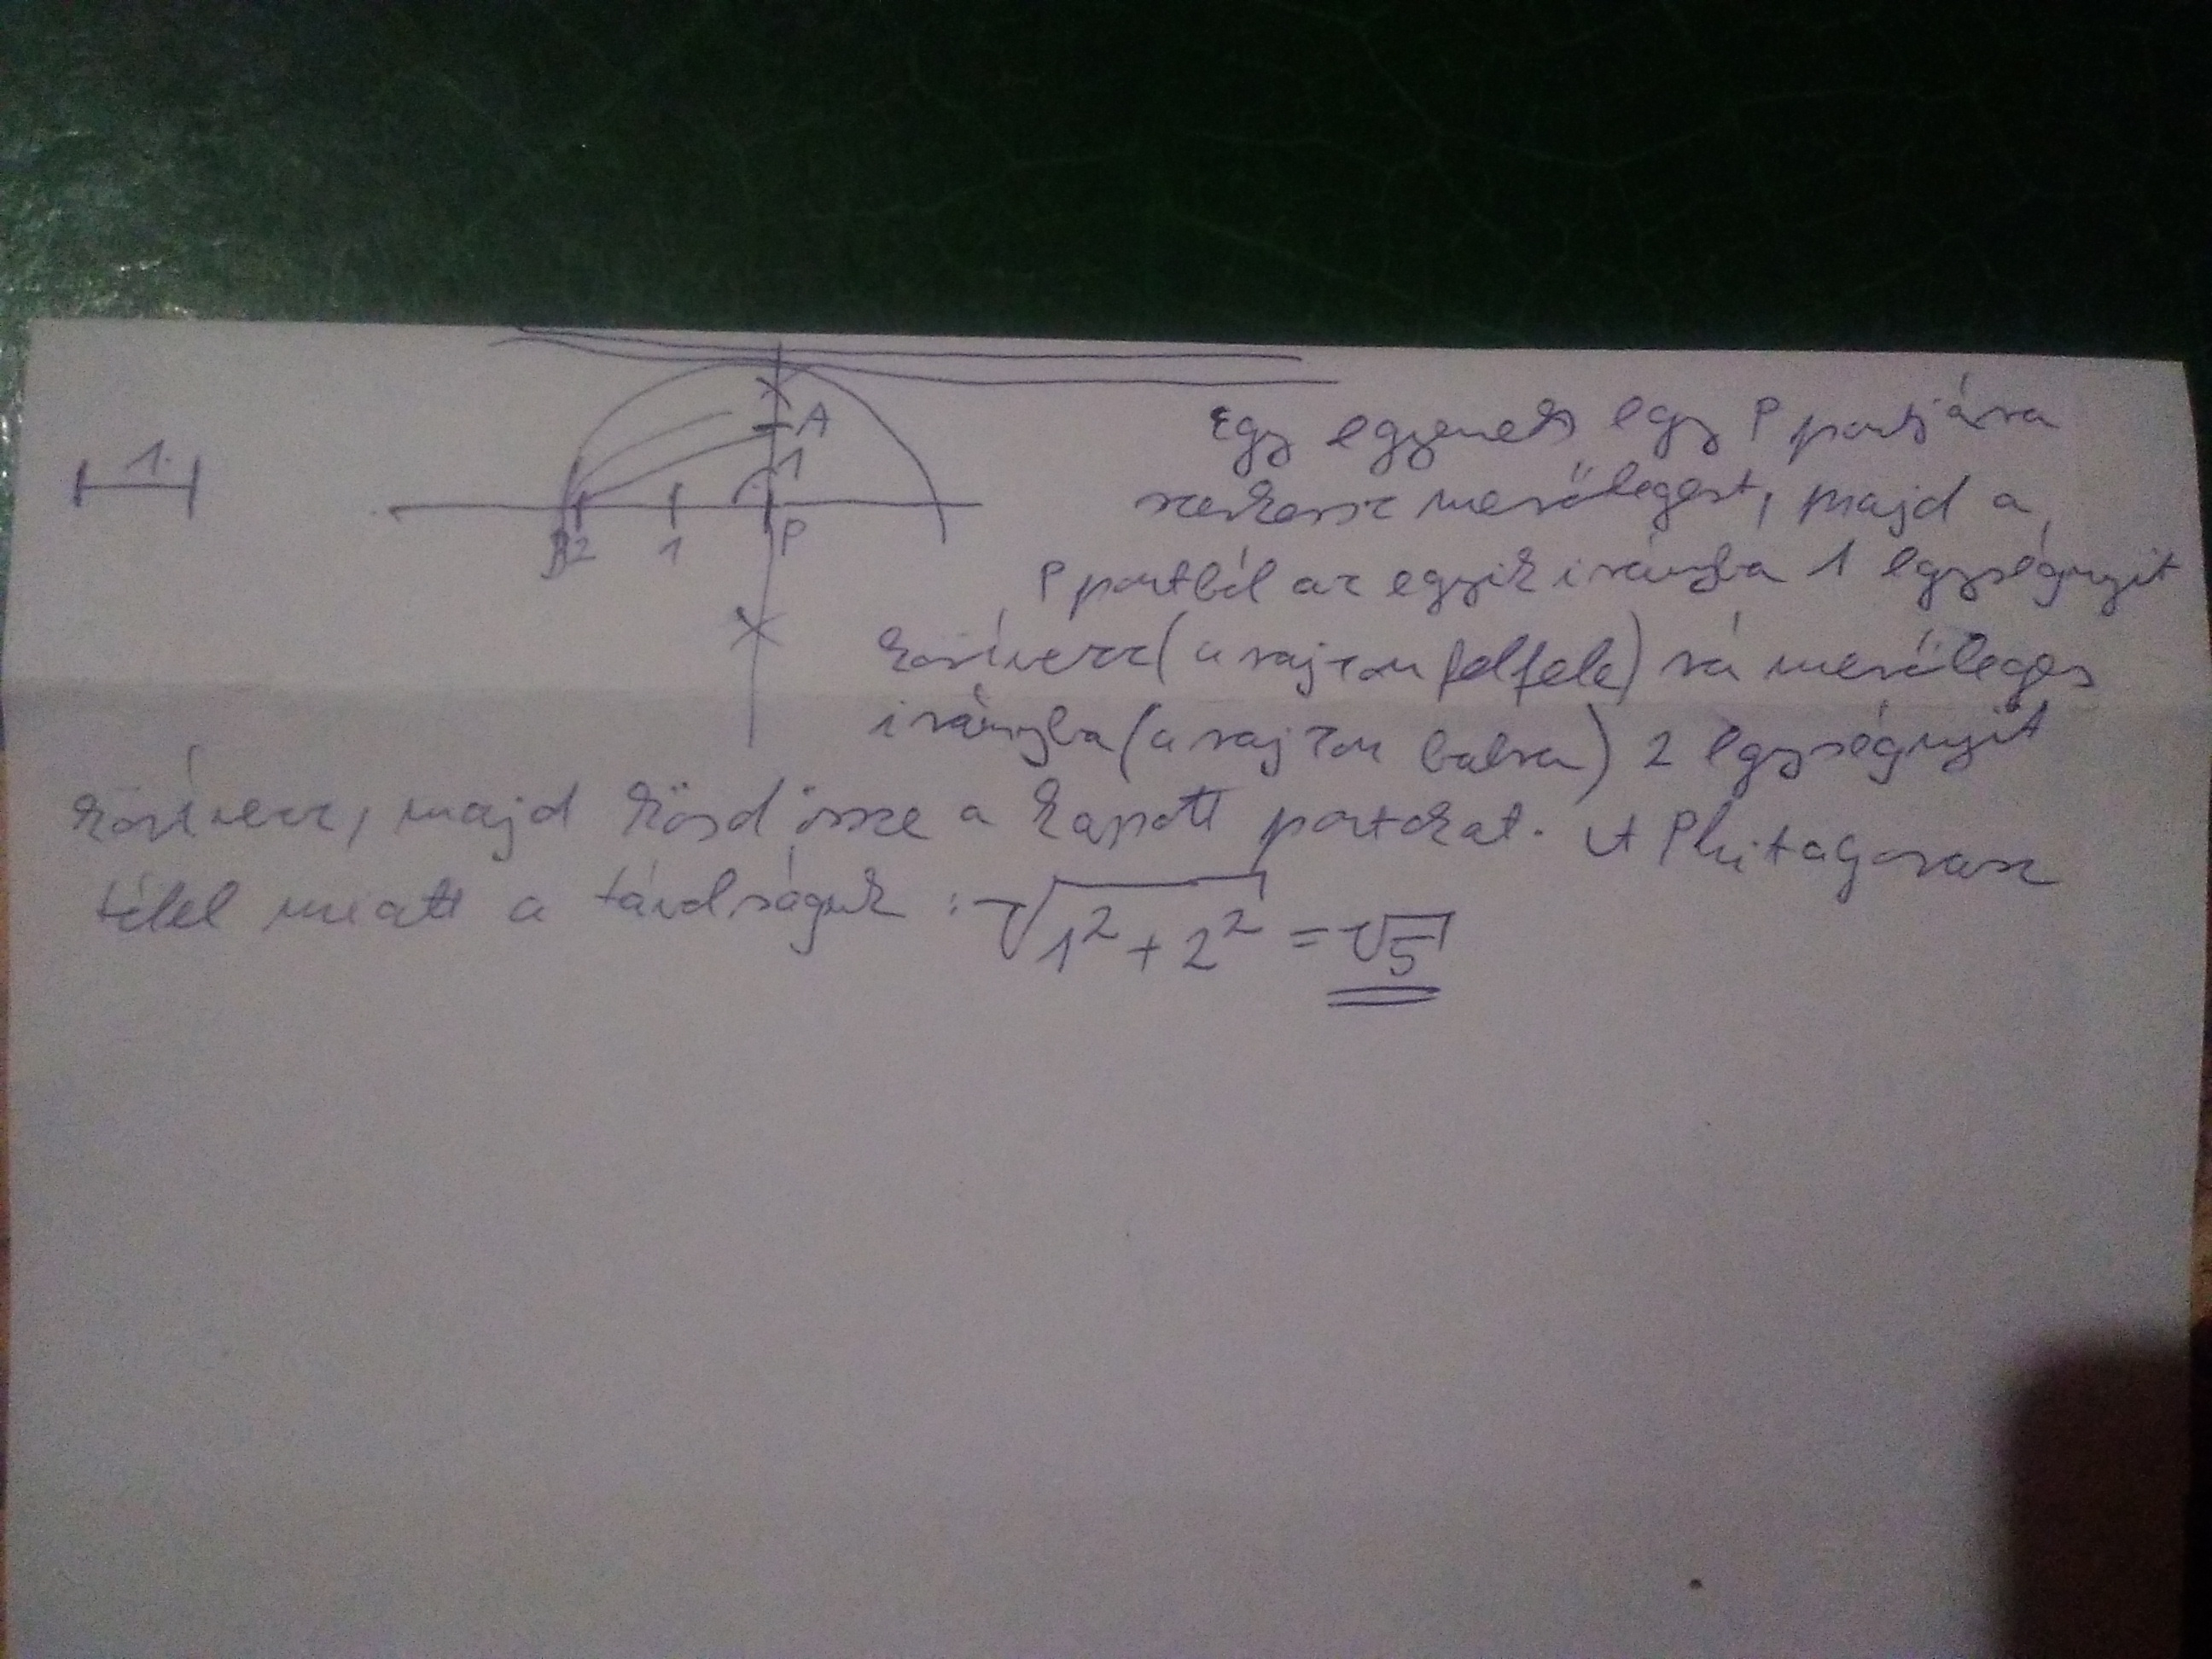 1
A
1
B 2 1 P
Egy egyenes egy P pontjára
szerkessz merőlegest, majd a
P pontból az egyik irányba 1 egységnyit
körívezz (a rajzon felfele) rá merőleges
irányba (a rajzon balra) 2 egységnyit
körívezz, majd kösd össze a kapott pontokat. A Phitagorasz
tétel miatt a távolságuk: √1²+2² = √5